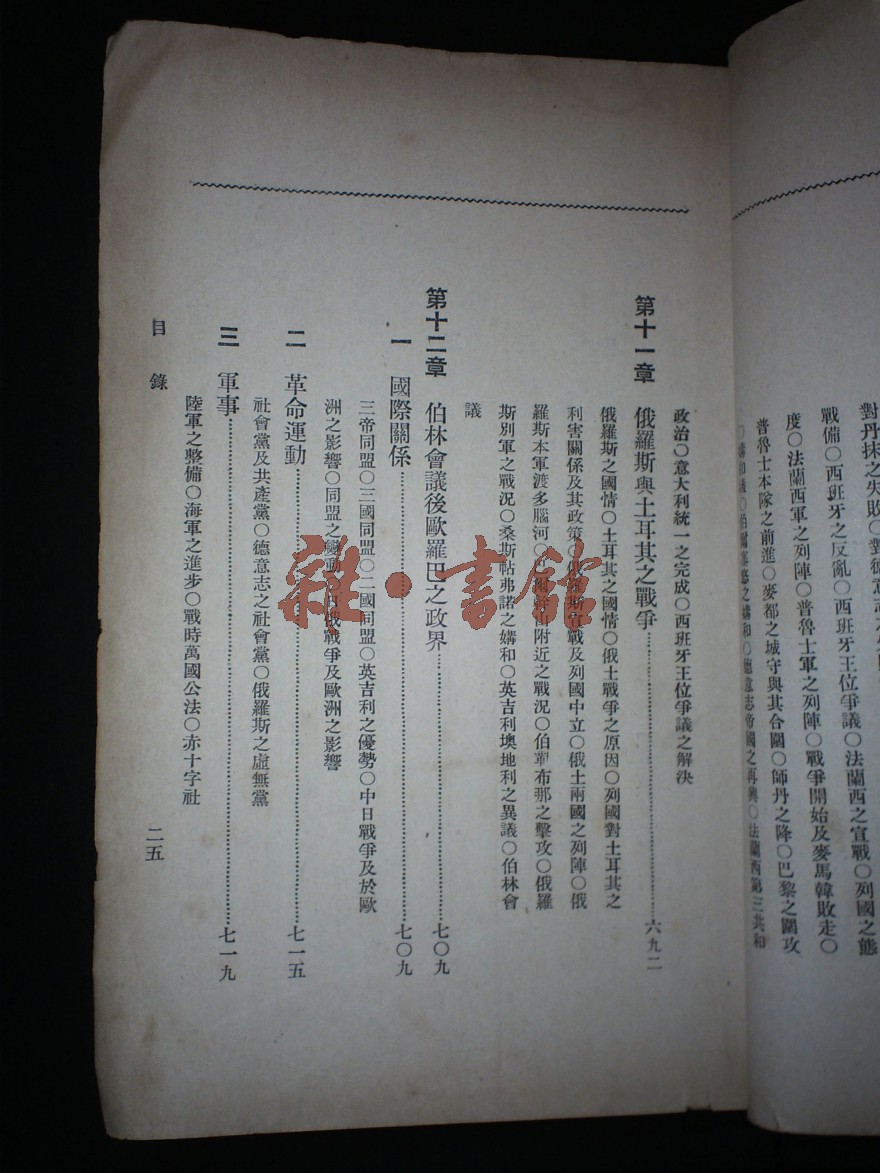 對丹抹之失敗〇對德意志
戰備〇西班牙之反亂〇西班牙王位爭議〇法蘭西之宣戰〇列國之態
度〇法蘭西軍之列陣〇普魯士軍之列陣〇戰爭開始及麥馬韓敗走〇
普魯士本隊之前進〇麥都之城守與其合圍〇師丹之降〇巴黎之圍攻
之媾和〇德意志帝國之再興〇法蘭西第三共和
政治〇意大利統一之完成〇西班牙王位爭議之解決
第十一章 俄羅斯與土耳其之戰爭……六九二
俄羅斯之國情〇土耳其之國情〇俄土戰爭之原因〇列國對土耳其之
利害關係及其政策〇俄羅斯宣戰及列國中立〇俄土兩國之列陣〇俄
羅斯本軍渡多腦河〇巴爾幹山附近之戰況〇伯勒布那之擊攻〇俄羅
斯別軍之戰況〇桑斯帖弗諾之媾和〇英吉利墺地利之異議〇伯林會
議
第十二章 伯林會議後歐羅巴之政界……七〇九
一 國際關係……七〇九
三帝同盟〇三國同盟〇二國同盟〇英吉利之優勢〇中日戰爭及於歐
洲之影響〇同盟之變動〇日俄戰爭及歐洲之影響
二 革命運動……七一五
社會黨及共產黨〇德意志之社會黨〇俄羅斯之虛無黨
三 軍事……七一九
陸軍之整備〇海軍之進步〇戰時萬國公法〇赤十字社
目錄 二五
雜·書館